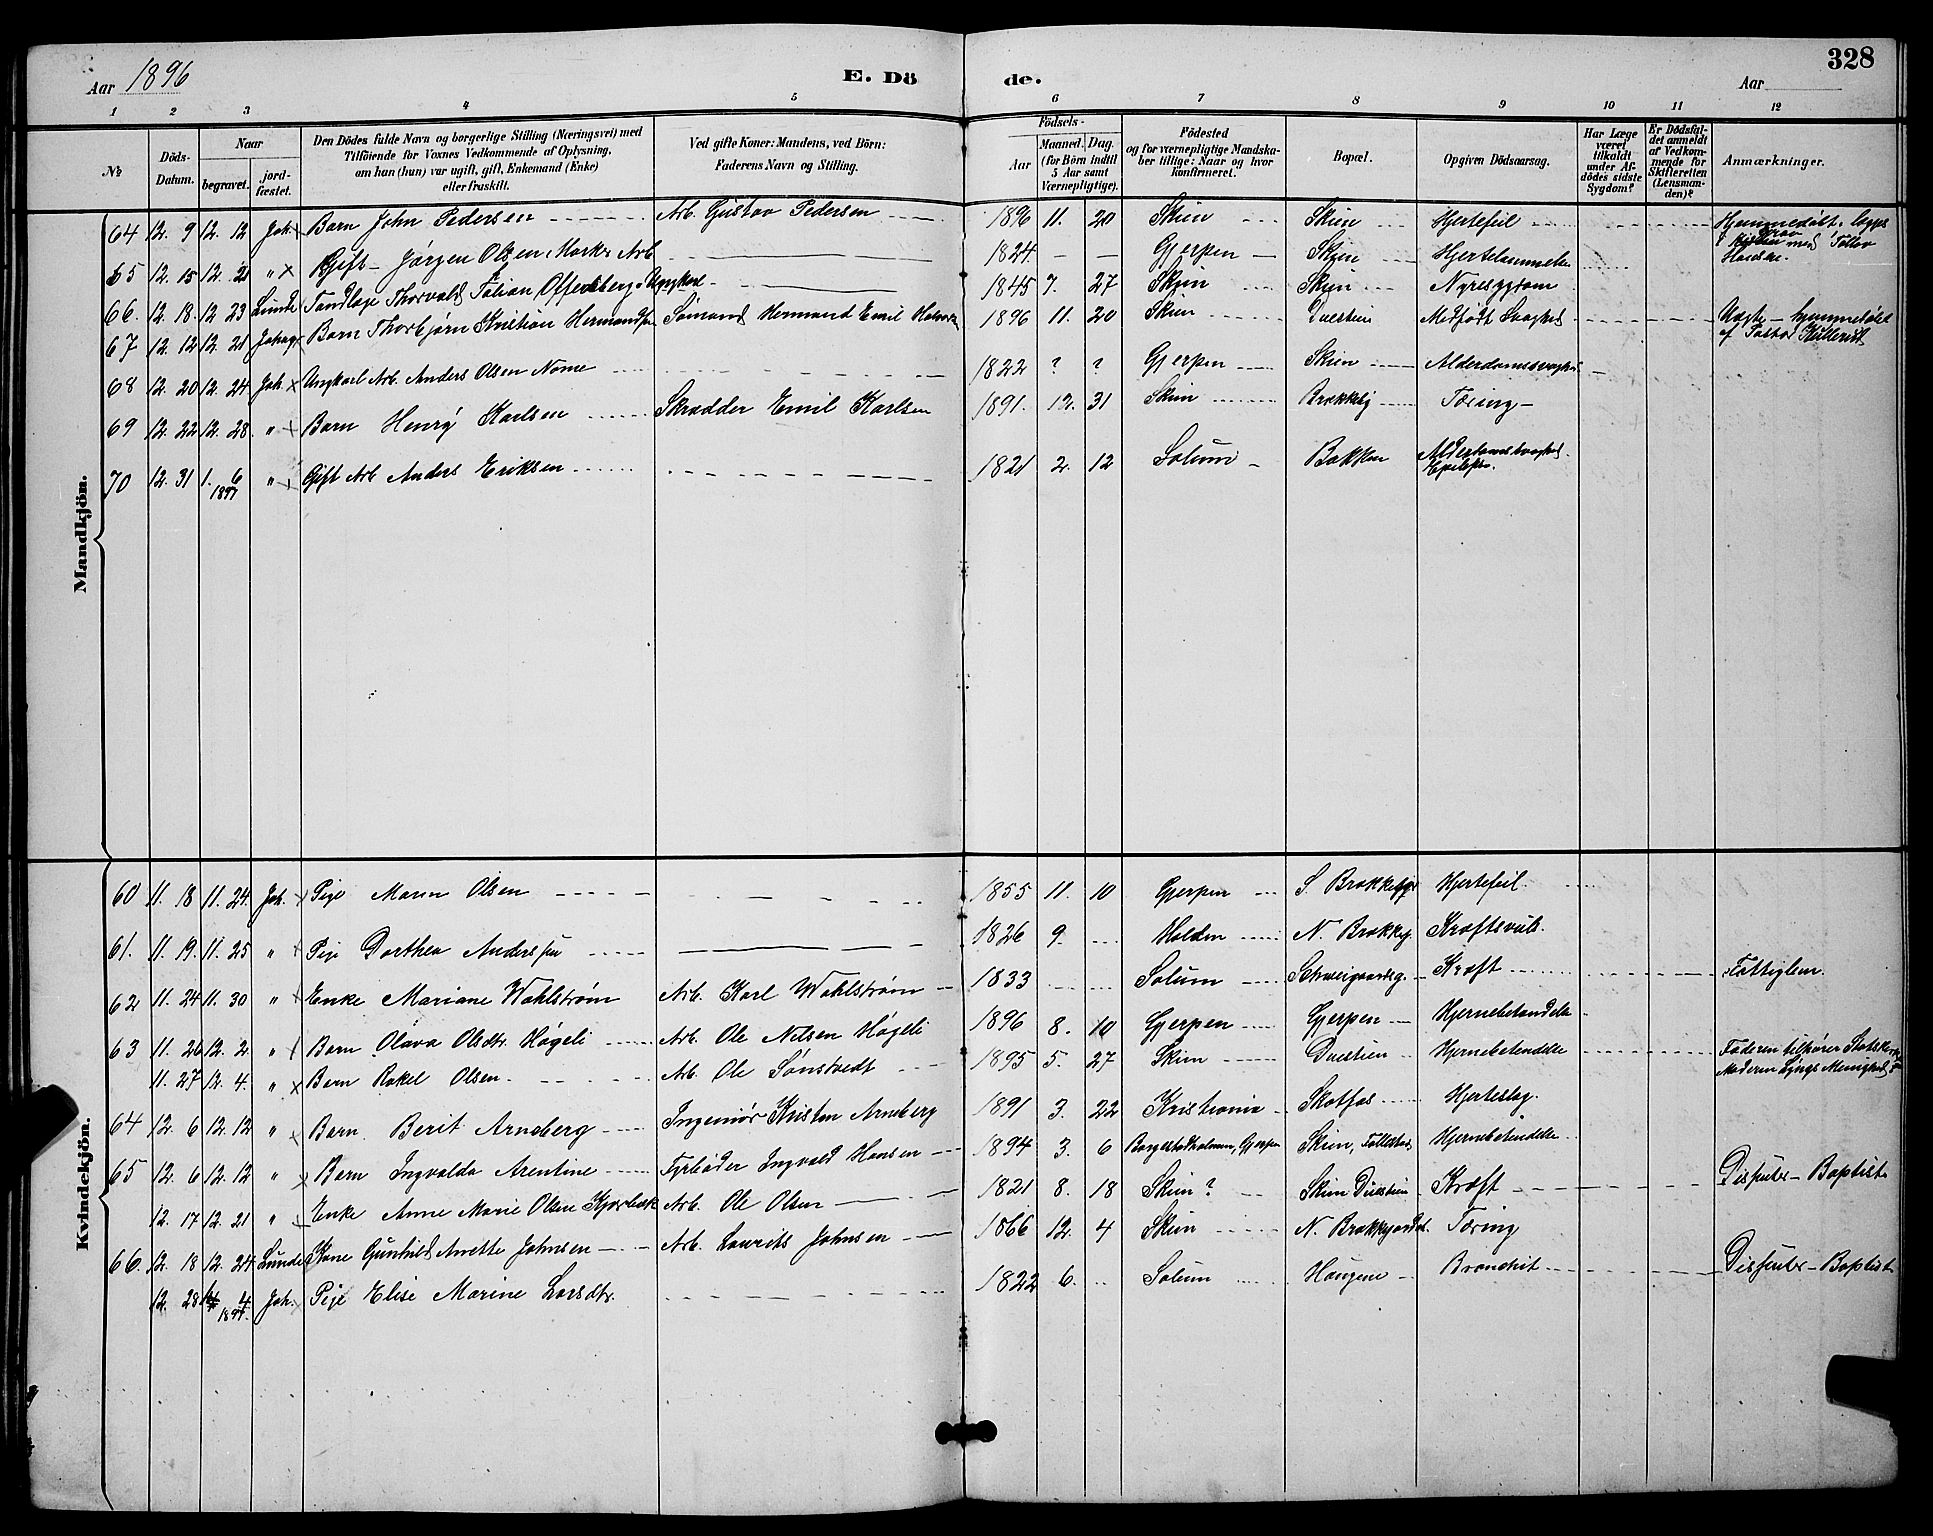 Aar 1896
E. Dö
de.
Aar
328
1 2 3 4 5 6 7 8 9 10 11 12
№
Döds-Datum.
Naar
begravet.
jord-fæstet.
Den Dödes fulde Navn og borgerlige Stilling (Næringsvei) med
Tilföiende for Voxnes Vedkommende af Oplysning,
om han (hun) var ugift, gift, Enkemand (Enke)
eller fraskilt.
Ved gifte Koner: Mandens, ved Börn:
Faderens Navn og Stilling.
Födsels-
Aar
Maaned. Dag.
(for Börn indtil
5 Aar samt
Værnepligtige).
Födested
og for værnepligtige Mandska-
ber tillige: Naar og hvor
konfirmeret.
Bopæl.
Opgiven Dödsaarsag.
Har Læge
været
tilkaldt
under Af-
dödes sidste
Sygdom?
Er Dödsfal-
det anmeldt
af Vedkom-
mende for
Skifteretten
(Lensman-
den)?
Anmærkninger.
Mandkjön.
64 12. 9 12. 12 Joh. × Barn John Pedersen Arb. Gustav Pedersen 1896 11. 20 Skien Skien Hjertefeil Hjemmedøbt.
65 12. 15 12. 21 " × Gift Jørgen Olsen Arb. 1824 — — Gjerpen Skien Hjertelammelse
66. 12. 18. 12 23 Lunde Tandlæge Thorvald Ungkarl 1845 7. 27 Skien Skien Nyresygdom
67 12. 12 12. 21 Barn Thorbjørn Kristian Sømand Hermand Emil 1896 11. 20 Skien Duestien Medfødt Svaghed hjemmedøbt
af Pastor
68 12. 20 12. 24 Joh. × Ungkarl Arb. Anders Olsen Nome 1822 ? ? Gjerpen Skien
69 12. 22 12. 28. " × Barn Henry Karlsen Skrædder Emil Karlsen 1891. 12. 31 Skien Tæring
70 12. 31 1. 6 1897 " Gift Arb. Anders Eriksen 1821 2. 12 Solum Bakken
Kvindekjön.
60 11. 18 11. 24 Joh. × Pige Maren Olsen 1855 11. 10 Gjerpen Hjertefeil
61. 11. 19. 11. 25 " Pige Dorthea 1826 9. Holden
62 11. 24 11. 30 " Enke Mariane Wahlstrøm Arb. Karl Wahlstrøm 1833 Solum Kræft Fattiglem
63 11. 26 12. 2 " Barn Olava Olsdtr. Høgeli Arb. Ole Nilsen Høgeli 1896 8. 10 Gjerpen Gjerpen Hjernebetændelse
11. 27 12. 4. " × Barn Rakel Olsen Arb. Ole Sønstvedt 1895 5. 27 Skien Duestien Hjernebetændelse Faderen tilhører
64 12. 6 12. 12 " × Barn Berit Arneberg Ingeniør Kristen Arneberg 1891 3. 22 Kristiania Skotfos Hjerteslag
65 12. 6 12. 12 " × Barn Ingvalda Arentine Fyrbøder Ingvald Hansen 1894 3. 6 Gjerpen Skien, Hjernebetændelse
12. 17 12. 21 " Enke Anne Marie Olsen Arb. Ole Olsen 1821 8. 18 Skien? Skien Duestien Kræft Dissenter – Baptist
66. 12. 18 12. 24 Lunde Kone Gunhild Anette Johnsen Arb. Laurits Johnsen 1866 12. 4 Skien Tæring
12. 28 4 1897 Joh. Pige Elise Marine Larsdtr. 1822 6. Solum Haugene Bronchit Dissenter – Baptist